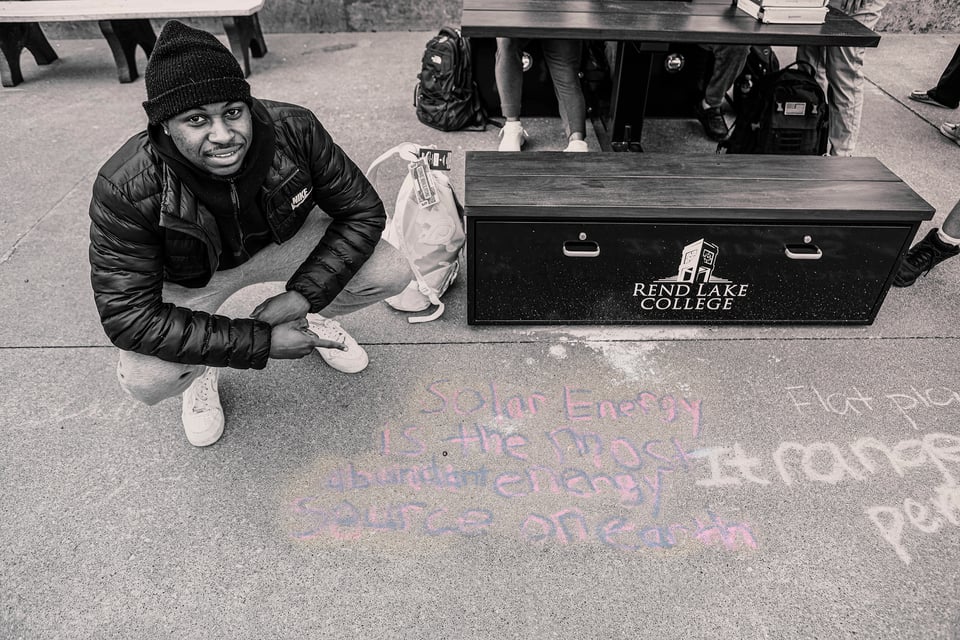 NIKE
REND LAKE
COLLEGE
Solar Energy
Is the Most
abundant energy
Source on earth
Flat
It